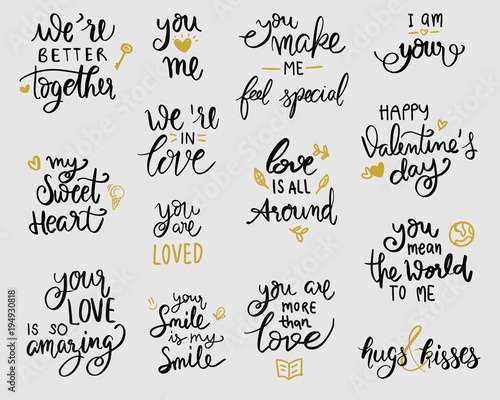 we're
BETTER
together
you
me
you
make
ME
feel special
I am
your
we're
IN
love
HAPPY
Valentine's
day
my
Sweet
Heart
love
IS ALL
Around
you
are
LOVED
you
mean
the World
TO ME
your
LOVE
IS SO
amazing
your
Smile
is my
Smile
you are
MORE
than
love
hugs & kisses
Adobe Stock | #194930818